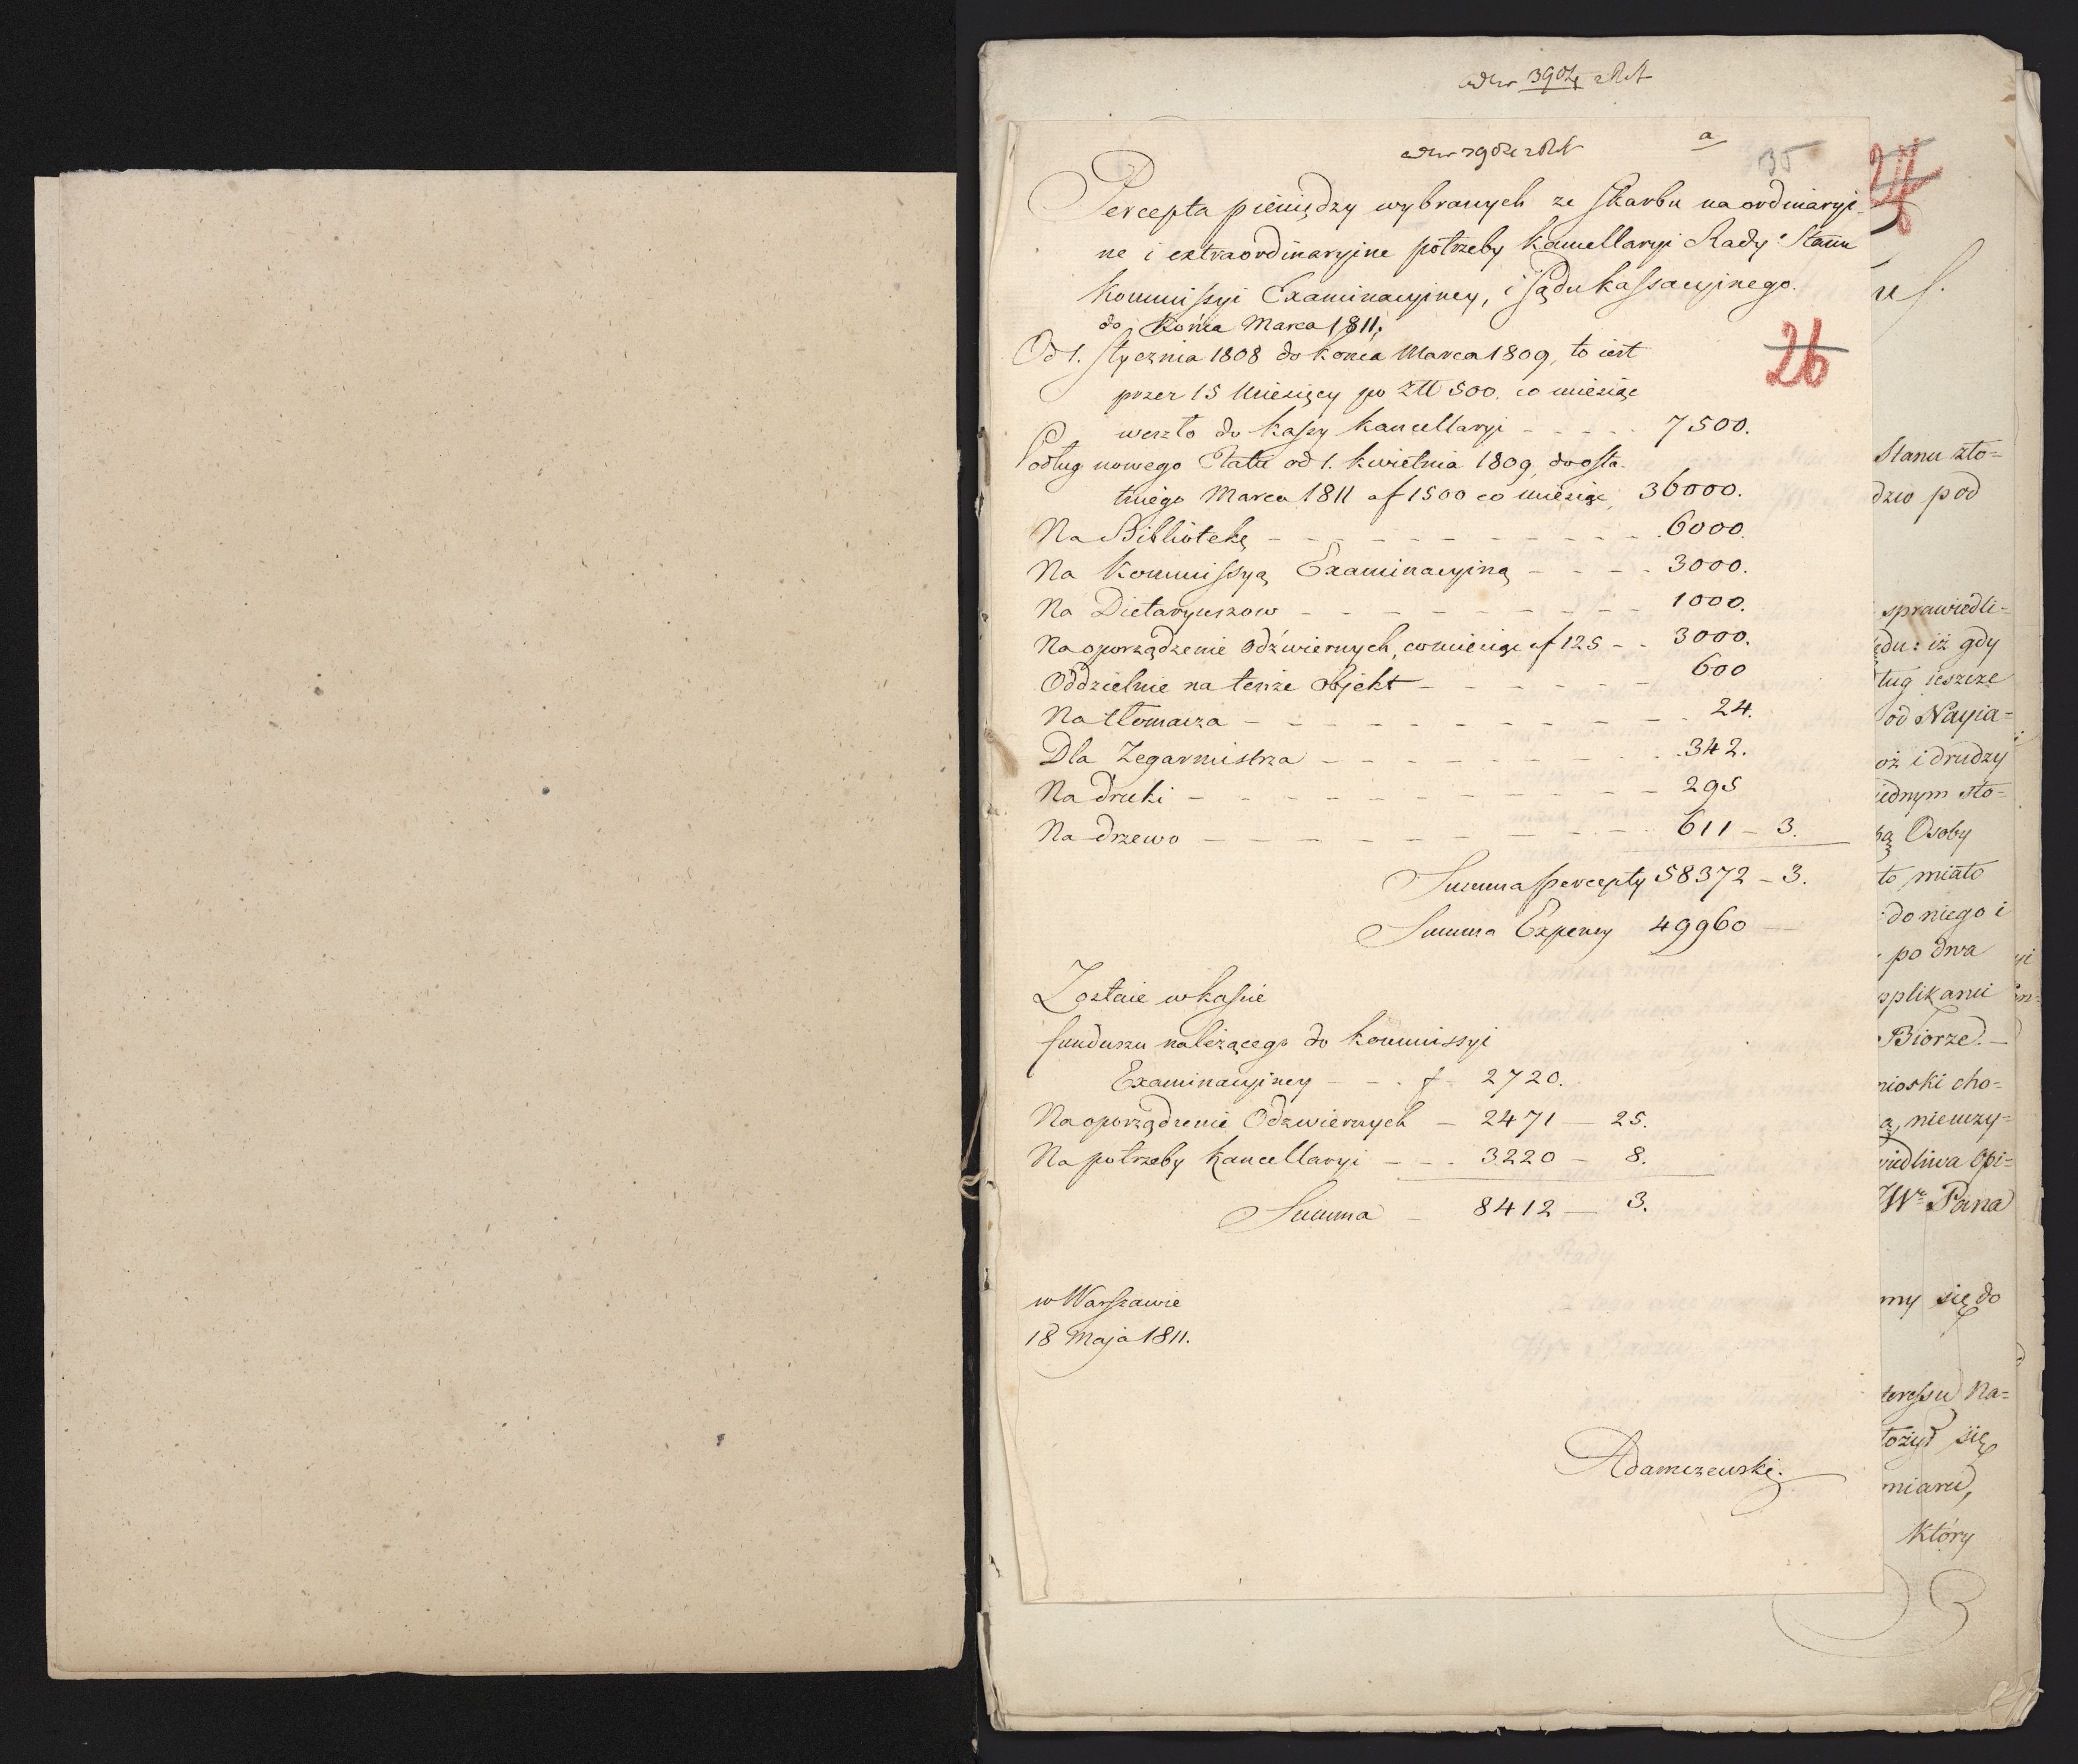 3904
a
35
Percepta pieniędzy wybranych ze Skarbu na ordinaryi-
ne i extraordinaryine potrzeby Kancellaryi Rady Stanu
Kommissyi Examinacyiney, i Sądu Kassacyinego.
do końca Marca 1811.
Od 1. Stycznia 1808 do końca Marca 1809, to iest
przez 15 Miesięcy po Złł 500. co miesiąc
weszło do kassy kancellaryi - - - - - 7500.
Podług nowego Etatu od 1. kwietnia 1809, do osta-
tniego Marca 1811 af 1500 co miesiąc, 36000.
Na Bibliotekę - - - - - - - - 6000.
Na Kommissyą Examinacyiną - - - - 3000.
Na Dietaryuszow - - - - - - - - 1000.
Na oporządzenie Odźwiernych, co miesiąc af 125 - - 3000.
Oddzielnie na tenże objekt - - - - - - 600
Na tłomacza - - - - - - - - 24.
Dla Zegarmistrza - - - - - - - 342.
Na druki - - - - - - - - - 295
Na drzewo - - - - - - - - - 611 - 3.
Summa percepty 58372 - 3.
Summa Expensy 49960 —
Zostaie w kassie
funduszu należącego do kommissyi
Examinacyiney - - - f 2720.
Na oporządzenie Odzwiernych - 2471 — 25.
Na potrzeby kancellaryi - - - 3220 - 8.
Summa - 8412 — 3.
w Warszawie
18 Maja 1811.
Adamczewski.
26
Stanu zło=
dzio pod
sprawiedli=
du: iż gdy
ług ieszcze
od Nayia=
oż i drudzy
iednym sło=
Osoby
to miało
do niego i
po dwa
pplikanci
Biorze. —
nioski cho=
niewzy=
iedliwa Opi=
Wo Pana
my się do
teressu Na=
łożył się
miaru,
Który